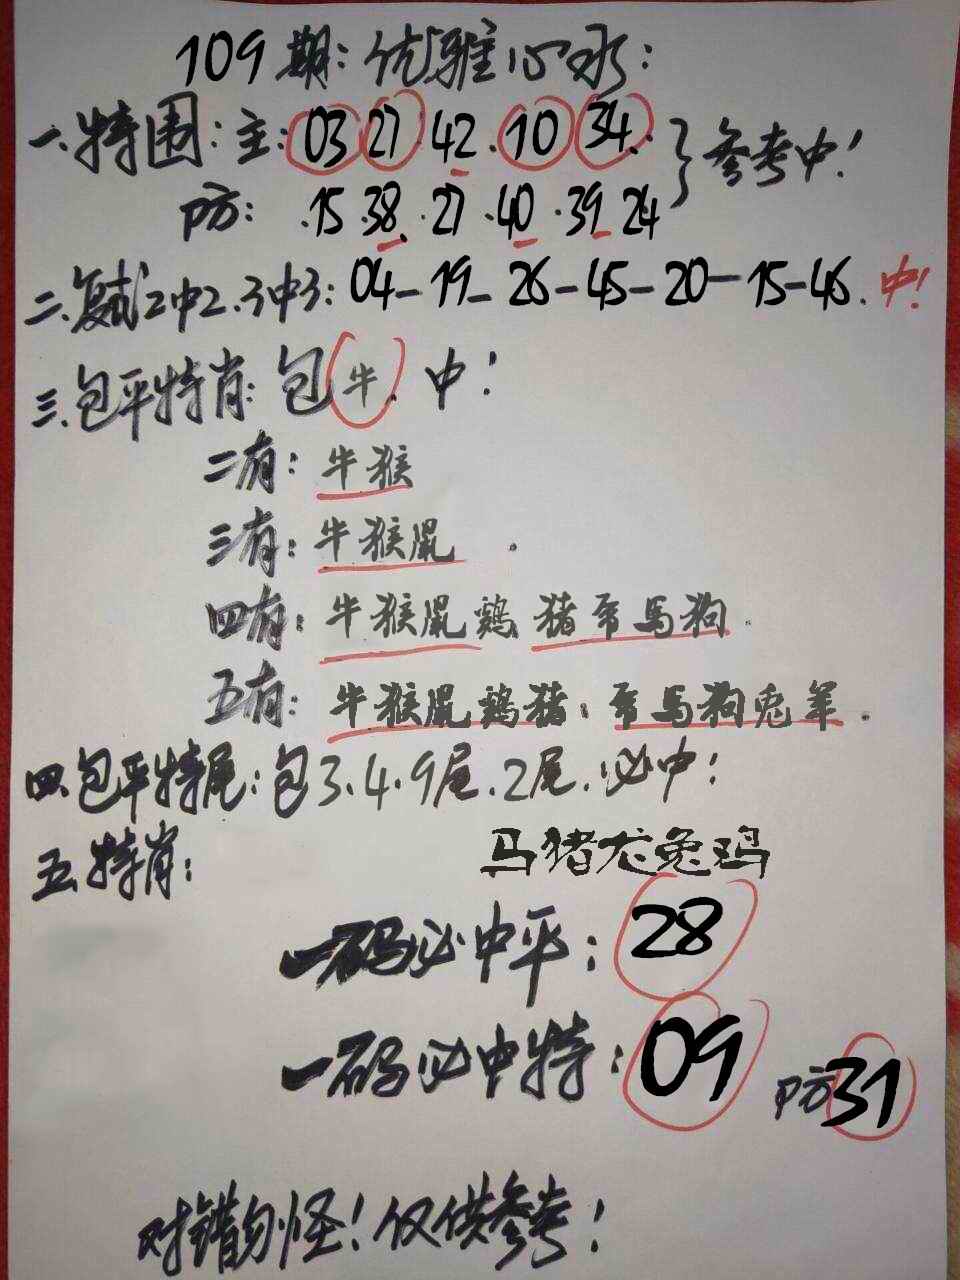 109期:优雅心水:
一.特围:主:03 27 42.10 34.
参考中!
防: .15.38.27.40.39 24
二.复试2中2.3中3:04-19-26-45-20-15-46.中!
三.包平特肖:包牛.中!
二有:牛猴
三有:牛猴鼠.
四有:牛猴鼠鷄猪帝馬狗.
五有:牛猴鼠鷄猪.帝馬狗兔羊.
四.包平特尾:包3.4.9尾.2尾.必中!
五.特肖: 马猪龙兔鸡
一码必中平:28
一码必中特:09 防31
对错勿怪!仅供参考!